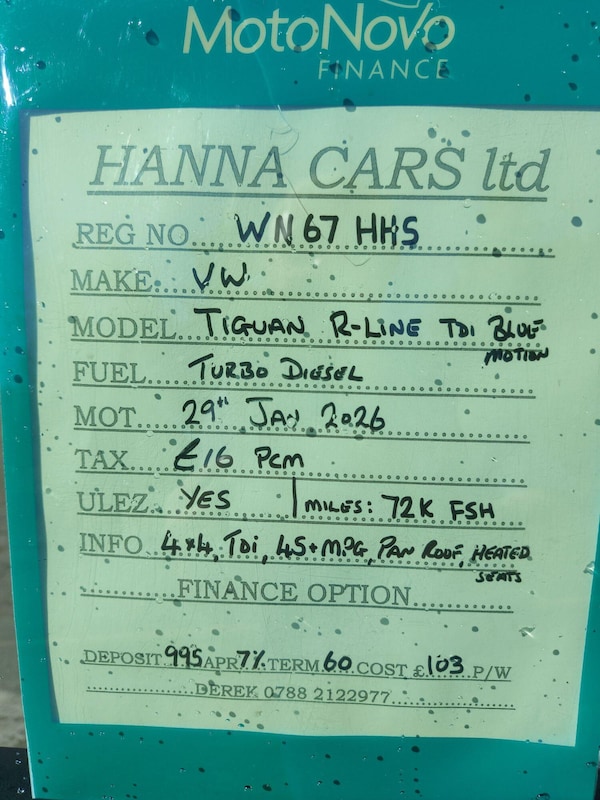 MotoNovo
FINANCE
HANNA CARS ltd
REG NO WN67 HHS
MAKE VW
MODEL TIGUAN R-LINE TDI BLUE
MOTION
FUEL TURBO DIESEL
MOT 29th JAN 2026
TAX £16 PCM
ULEZ YES | MILES: 72K FSH
INFO 4x4, TDi, 45+MPG, PAN ROOF, HEATED
SEATS
FINANCE OPTION
DEPOSIT 995 APR 7% TERM 60 COST £103 P/W
DEREK 0788 2122977